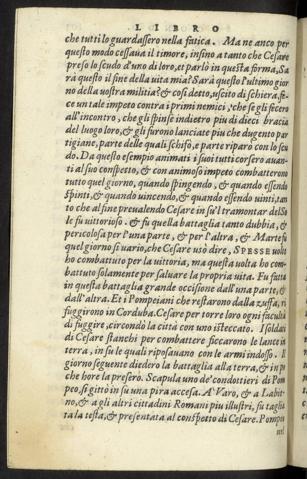 LIBRO
che tutti lo guardassero nella fatica. Ma ne anco per
questo modo cessaua il timore, infino a tanto che Cesare
preso lo scudo d'uno di loro, et parlò in questa forma, Sa
rà questo il fine della uita mia? Sarà questo l'ultimo gior
no della uostra militia? & così detto, uscito di schiera, fe
ce un tale impeto contra i primi nemici, che se gli fecero
all'incontro, che gli spinse indietro piu di dieci braccia
del luogo loro, & gli furono lanciate piu che dugento par
tigiane, parte delle quali schifò, e parte riparò con lo scu
do. Da questo esempio animati i suoi tutti corsero auan-
ti al suo conspetto, & con animoso impeto combatterono
tutto quel giorno, quando spingendo, & quando essendo
spinti, & quando uincendo, & quando essendo uinti, tan
to che al fine preualendo Cesare in su'l tramontar del So
le fu uittorioso. & fu quella battaglia tanto dubbia, &
pericolosa per l'una parte, & per l'altra, & Marte fu
quel giorno sì uario, che Cesare usò dire, SPESSE uolte
ho combattuto per la uittoria, ma questa uolta ho com-
battuto solamente per saluare la propria uita. Fu fatta
in questa battaglia grande occisione dall'una parte, &
dall'altra. Et i Pompeiani che restarono dalla zuffa, ri
fuggirono in Corduba. Cesare per torre loro ogni facultà
di fuggire, circondò la città con uno isteccato. I soldati
di Cesare stanchi per combattere ficcarono le lance in
terra, in su le quali riposauano con le armi indosso. Il
giorno seguente diedero la battaglia alla terra, & in po
che hore la presero. Scapula uno de' condottieri di Pom
peo, si gittò in su una pira accesa. A Varo, & a Labie-
no, & a gli altri cittadini Romani piu illustri, fu taglia
ta la testa, & presentata al conspetto di Cesare. Pompeo